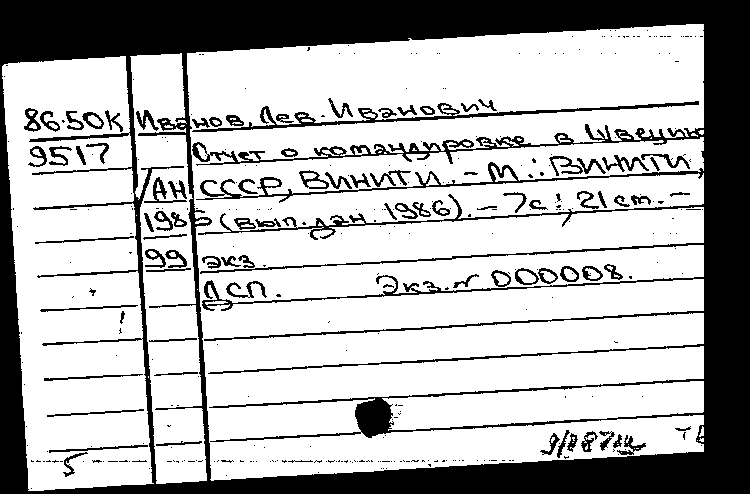 86-50К Иванов, Лев Иванович
9517 Отчет о командировке в Швецию
/АН СССР, ВИНИТИ. - М.: ВИНИТИ,
1985 (вып. дан. 1986). - 7с!, 21 см. -
99 экз.
ДСП. Экз. № 000008.
5